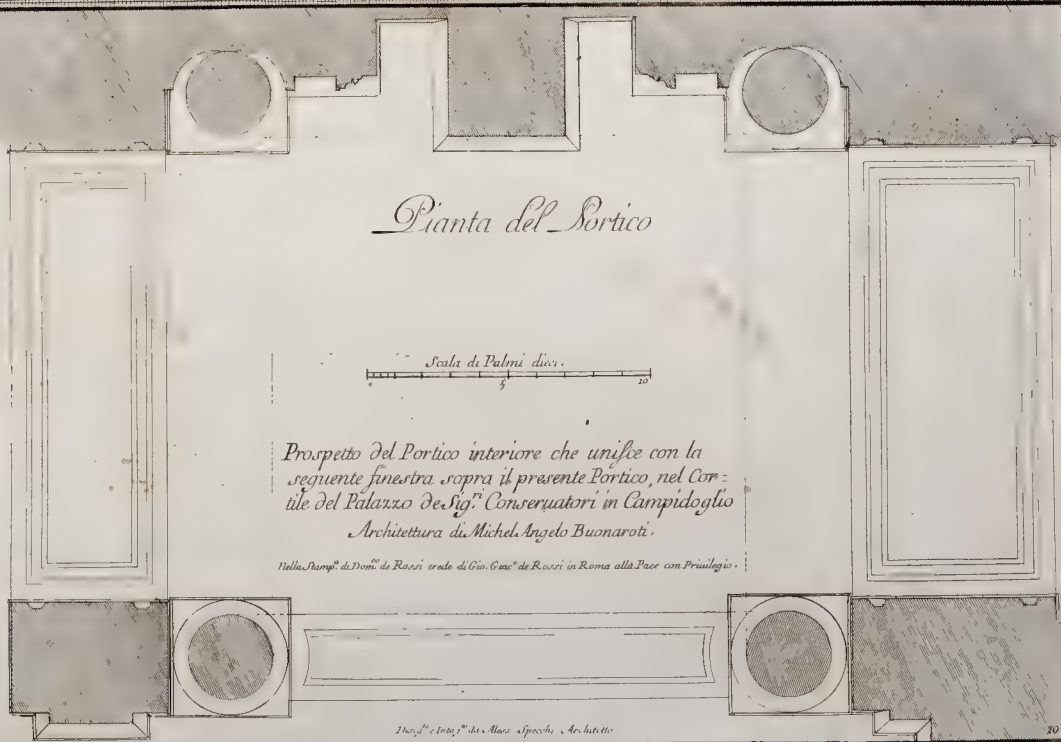 Pianta del Portico
Scala di Palmi dieci.
0 5 10
Prospetto del Portico interiore che unisce con la
seguente finestra sopra il presente Portico, nel Cor=
tile del Palazzo de Sig.ri Conseruatori in Campidoglio
Architettura di Michel Angelo Buonaroti.
Nella Stamp.a di Dom.co de Rossi erede di Gio. Giac.o de Rossi in Roma alla Pace con Priuilegio.
Diseg.to e Intag.to da Aless. Specchi Architetto